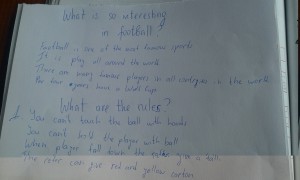 What is so interesting
in football?
Football is one of the most famous sports
It is play all around the world
There are many famous players in all in the world
four years have a World Cup
What are the rules?
1. You can't touch the ball with hands
You can't hold the player with ball
When player fall down the give a ball
The can give red and yellow